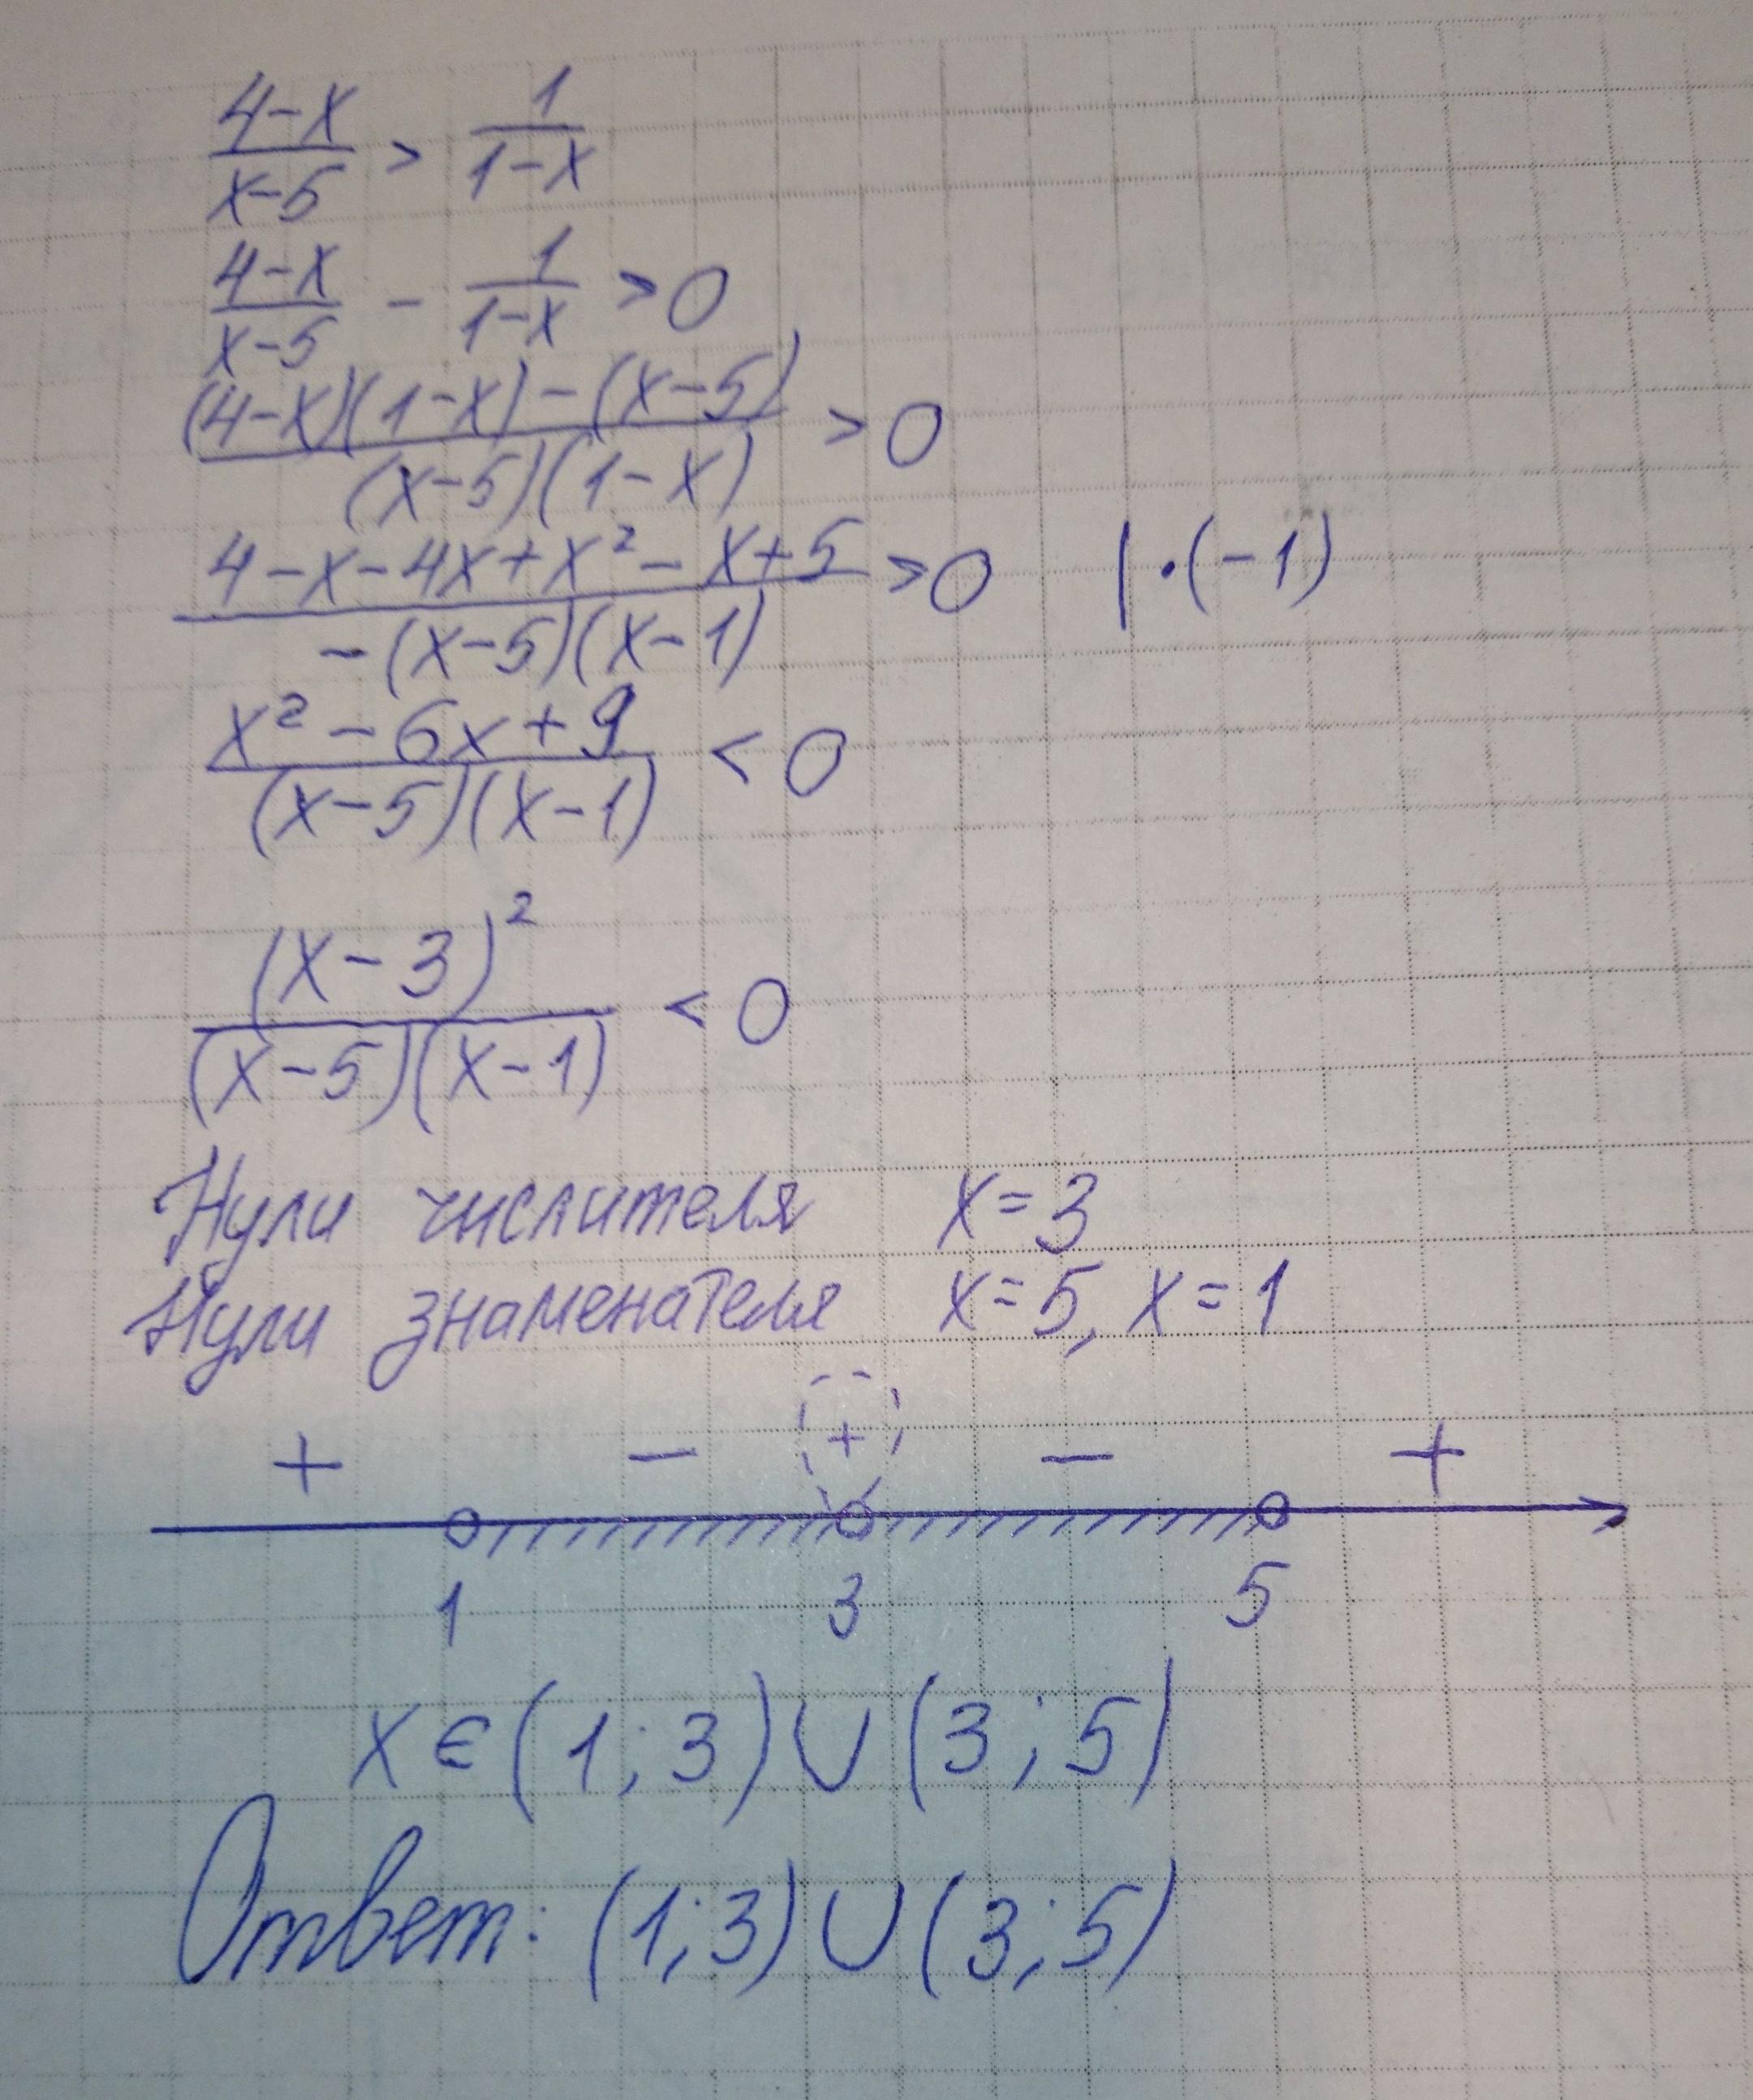 (4-x)/(x-5) > 1/(1-x)
(4-x)/(x-5) - 1/(1-x) > 0
((4-x)(1-x)-(x-5))/((x-5)(1-x)) > 0
(4-x-4x+x²-x+5)/(-(x-5)(x-1)) > 0 | ·(-1)
(x²-6x+9)/((x-5)(x-1)) < 0
(x-3)²/((x-5)(x-1)) < 0
Нули числителя x=3
Нули знаменателя x=5, x=1
+ - + - +
1 3 5
x∈(1;3)∪(3;5)
Ответ: (1;3)∪(3;5)